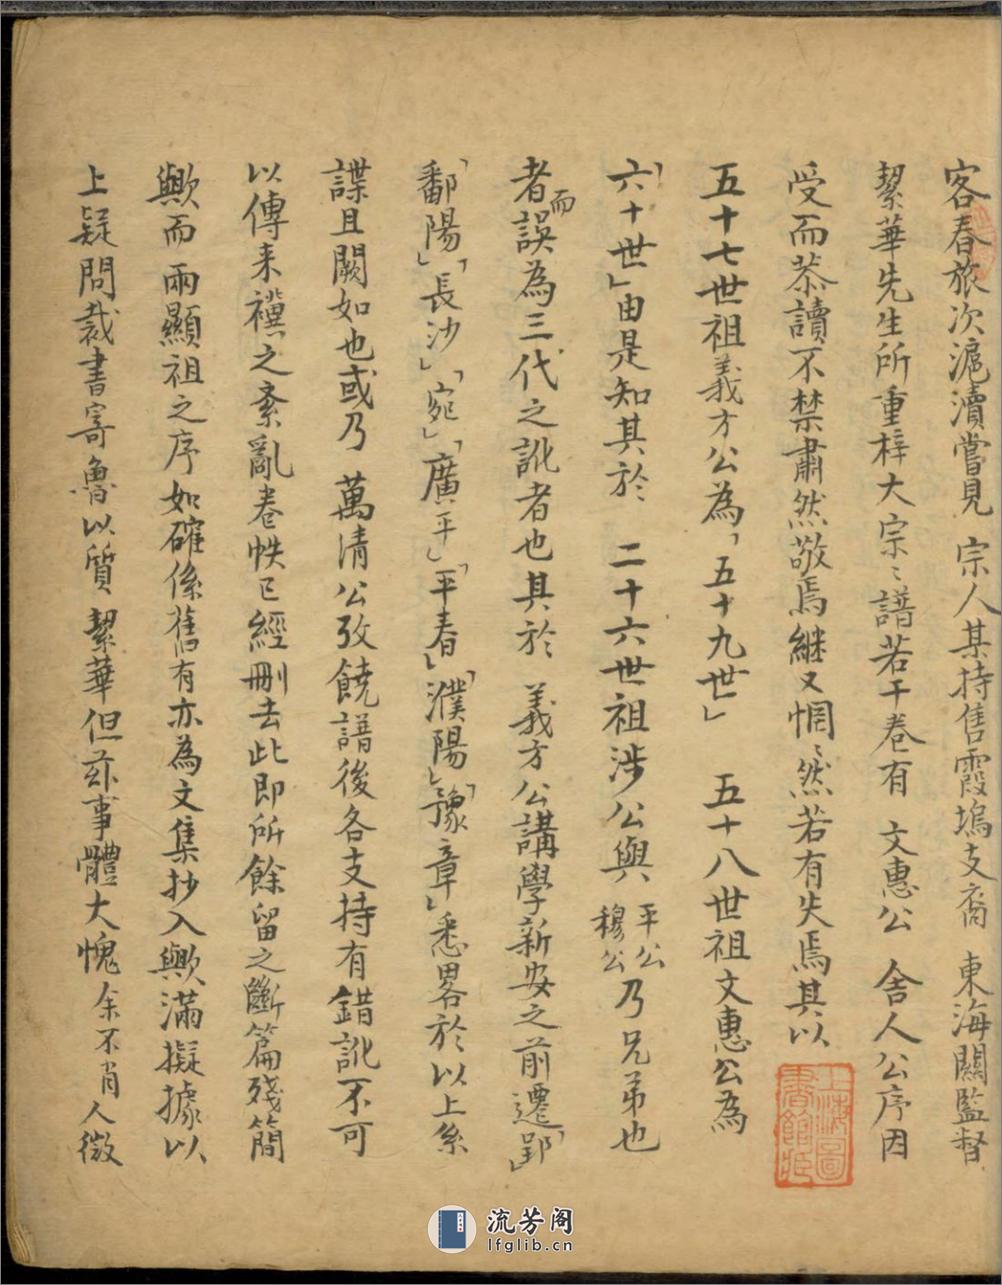 客春旅次滬瀆嘗見 宗人某持售霞塢支裔 東海關監督
絜華先生所重梓大宗〻譜若干卷有 文惠公 舍人公序因
受而恭讀不禁肅然敬焉繼又惘〻然若有失焉其以
五十七世祖義方公為「五十九世」 五十八世祖文惠公為
「六十世」由是知其於 二十六世祖涉公與平公穆公乃兄弟也
者而誤為三代之訛者也其於 義方公講學新安之前遷「郢」
「鄱陽」「長沙」「宛」「廣平」「平春」「濮陽」「豫章」悉畧於以上系
諜且闕如也或乃 萬清公攷饒譜後各支持有錯訛不可
以傳来襈之紊亂卷帙已經刪去此即所餘留之斷篇殘簡
歟而 兩顯祖之序如確係舊有亦為文集抄入歟滿擬據以
上疑問裁書寄魯以質 絜華但茲事體大愧余不肖人微
上海圖書館藏
流芳阁
lfglib.cn